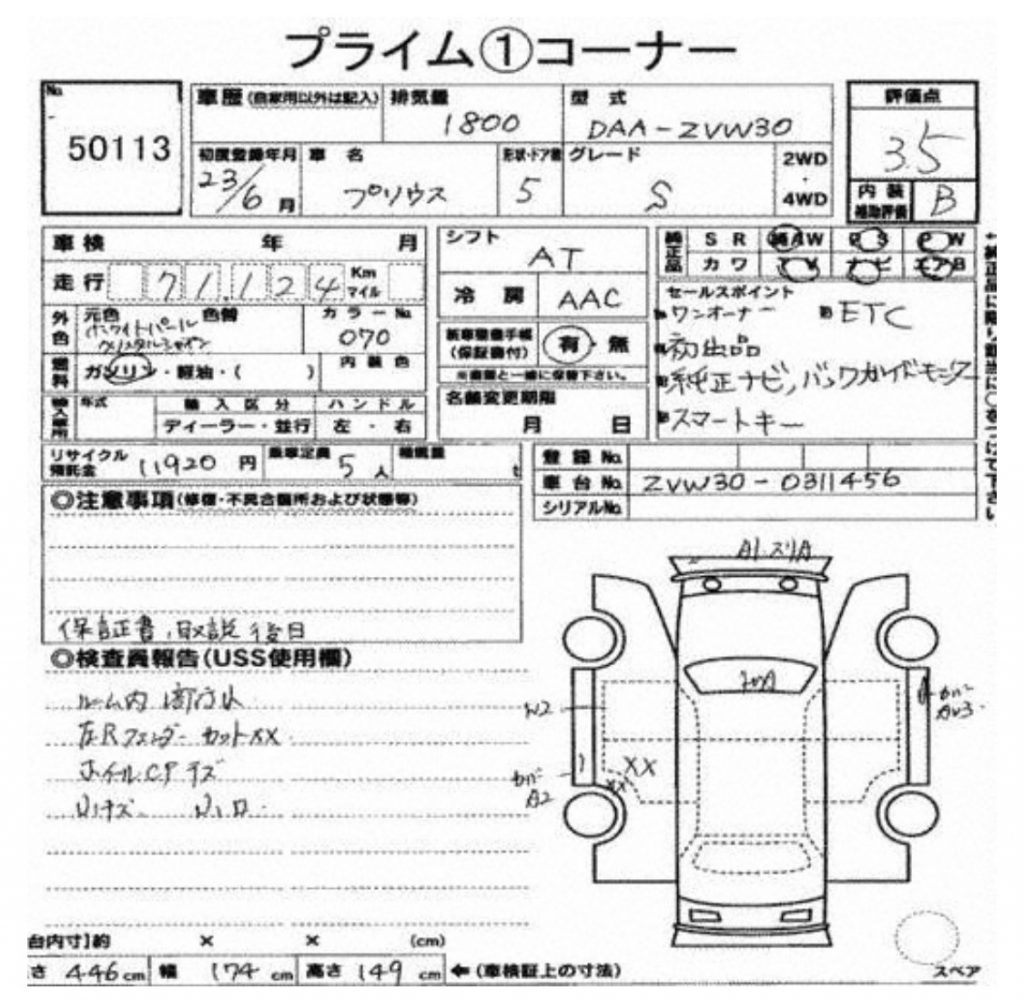 プライム①コーナー
No.
50113
車歴(自家用以外は記入)
排気量
1800
型 式
DAA-ZVW30
評価点
3.5
初度登録年月
23/6月
車 名
プリウス
形状・ドア数
5
グレード
S
2WD
・
4WD
内 装
補助評価
B
車 検 年 月
走 行 71.124 Km マイル
外色
元色 色替
ホワイトパール
クリスタルシャイン
カラーNo.
070
燃料
ガソリン・軽油・( )
内装色
輸入車用
年式
輸入区分
ディーラー・並行
ハンドル
左・右
シフト
AT
冷 房
AAC
新車整備手帳
(保証書付)
有・無
※書類と一緒に保管下さい。
名義変更期限
月 日
純正品
SR
AW
PS
PW
カワ
TV
ナビ
エアB
セールスポイント
ワンオーナー
ETC
初出品
純正ナビ,バックガイドモニター
スマートキー
リサイクル
預託金
11920円
乗車定員 5人
積載量 t
登録No.
車台No. ZVW30-0311456
シリアルNo.
◎注意事項(修復・不具合箇所および状態等)
保証書,取説後日
◎検査員報告(USS使用欄)
ルーム内
左Rフェンダーカットxx
ホイールCPキズ
A1
カバー
A2
xx
xx
カバー
台内寸]約 × × (cm)
さ 446cm 幅 174cm 高さ 149cm ←(車検証上の寸法)
スペア